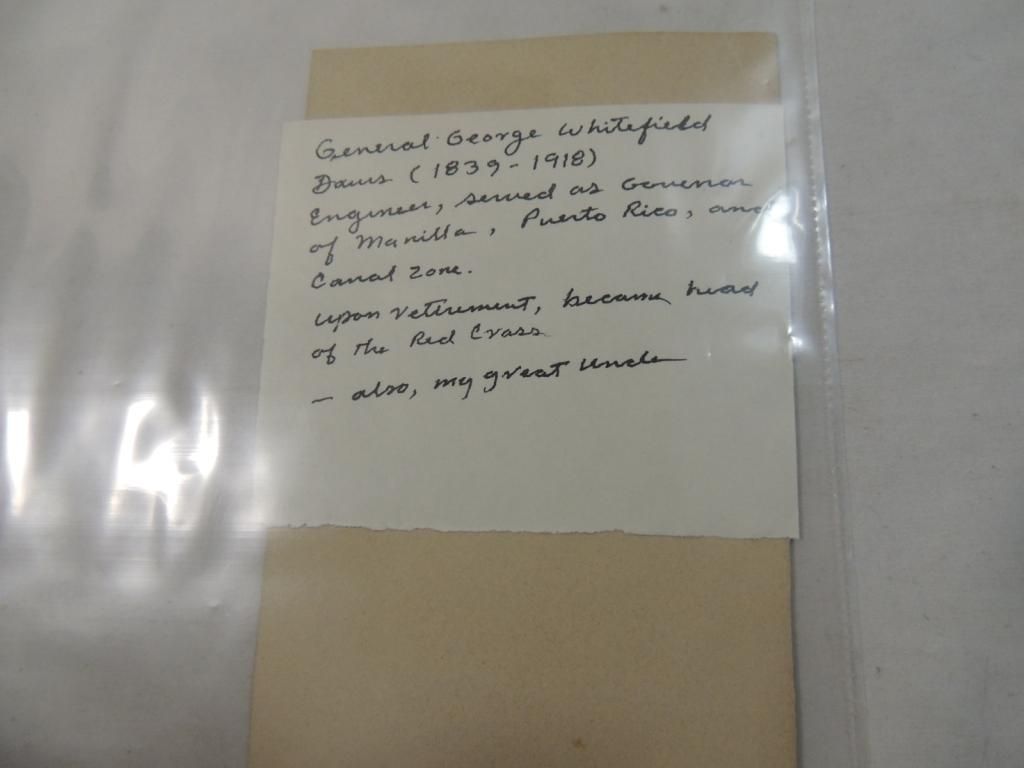 General George Whitefield
Davis (1839-1918)
Engineer, served as Governor
of Manilla, Puerto Rico, and
Canal Zone.
upon retirement, became head
of the Red Cross
- also, my great uncle